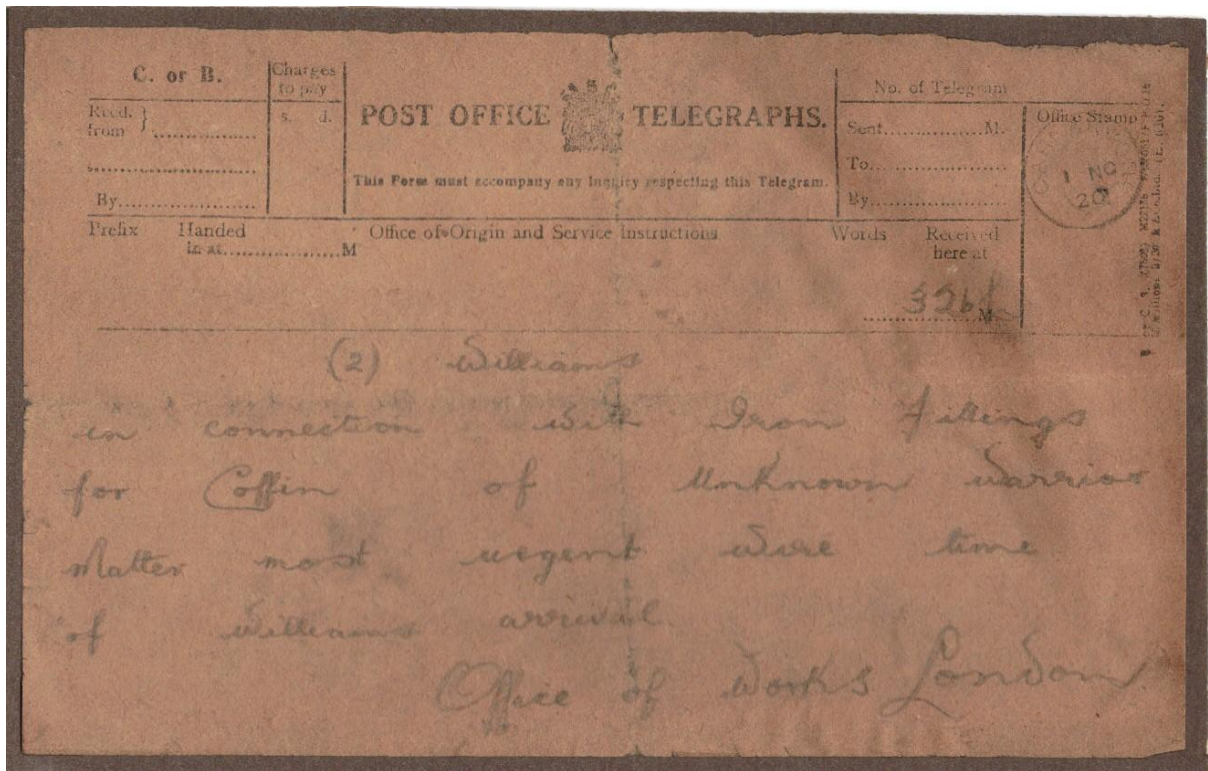 C. or B.
Charges
to pay
s. d.
Recd.
from
By
POST OFFICE TELEGRAPHS.
This Form must accompany any Inquiry respecting this Telegram.
No. of Telegram
Sent M.
To
By
Office Stamp
1 NO
20
Prefix Handed
in at M
Office of Origin and Service Instructions
Words Received
here at
326 M
(2) Williams
in connection with Iron fittings
for Coffin of Unknown Warrior
Matter most urgent wire time
of Williams arrival
Office of Works London